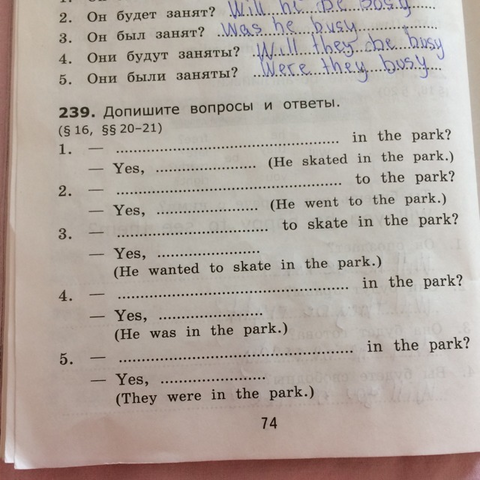 2. Он будет занят? Will he be busy
3. Он был занят? Was he busy
4. Они будут заняты? Will they be busy
5. Они были заняты? Were they busy
239. Допишите вопросы и ответы.
(§ 16, §§ 20–21)
1. — ........................................ in the park?
— Yes, .................. (He skated in the park.)
2. — ........................................ to the park?
— Yes, .................. (He went to the park.)
3. — ........................... to skate in the park?
— Yes, ..................
(He wanted to skate in the park.)
4. — ........................................ in the park?
— Yes, ..................
(He was in the park.)
5. — ........................................ in the park?
— Yes, ..................
(They were in the park.)
74